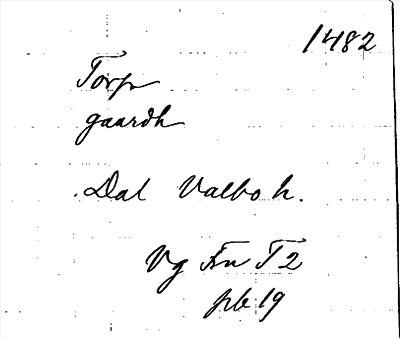 1482
Torp
gaardh
Dal Valbo h.
Vg Fru T 2
pb 19